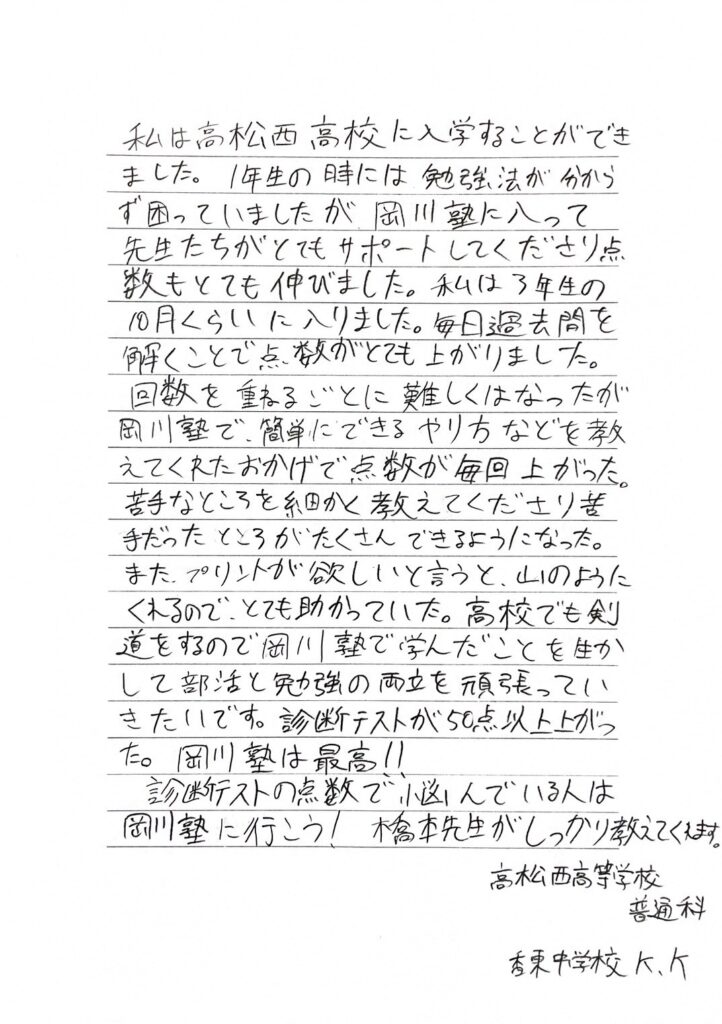 私は高松西高校に入学することができ
ました。1年生の時には勉強法が分から
ず困っていましたが岡川塾に入って
先生たちがとてもサポートしてくださり点
数もとても伸びました。私は3年生の
10月くらいに入りました。毎日過去問を
解くことで点数がとても上がりました。
回数を重ねるごとに難しくはなったが
岡川塾で、簡単にできるやり方などを教
えてくれたおかげで点数が毎回上がった。
苦手なところを細かく教えてくださり苦
手だったところがたくさんできるようになった。
また、プリントが欲しいと言うと、山のように
くれるので、とても助かっていた。高校でも剣
道をするので岡川塾で学んだことを生か
して部活と勉強の両立を頑張ってい
きたいです。診断テストが50点以上上がっ
た。岡川塾は最高!!
診断テストの点数で悩んでいる人は
岡川塾に行こう!橋本先生がしっかり教えてくれます。
高松西高等学校
普通科
香東中学校 K.K